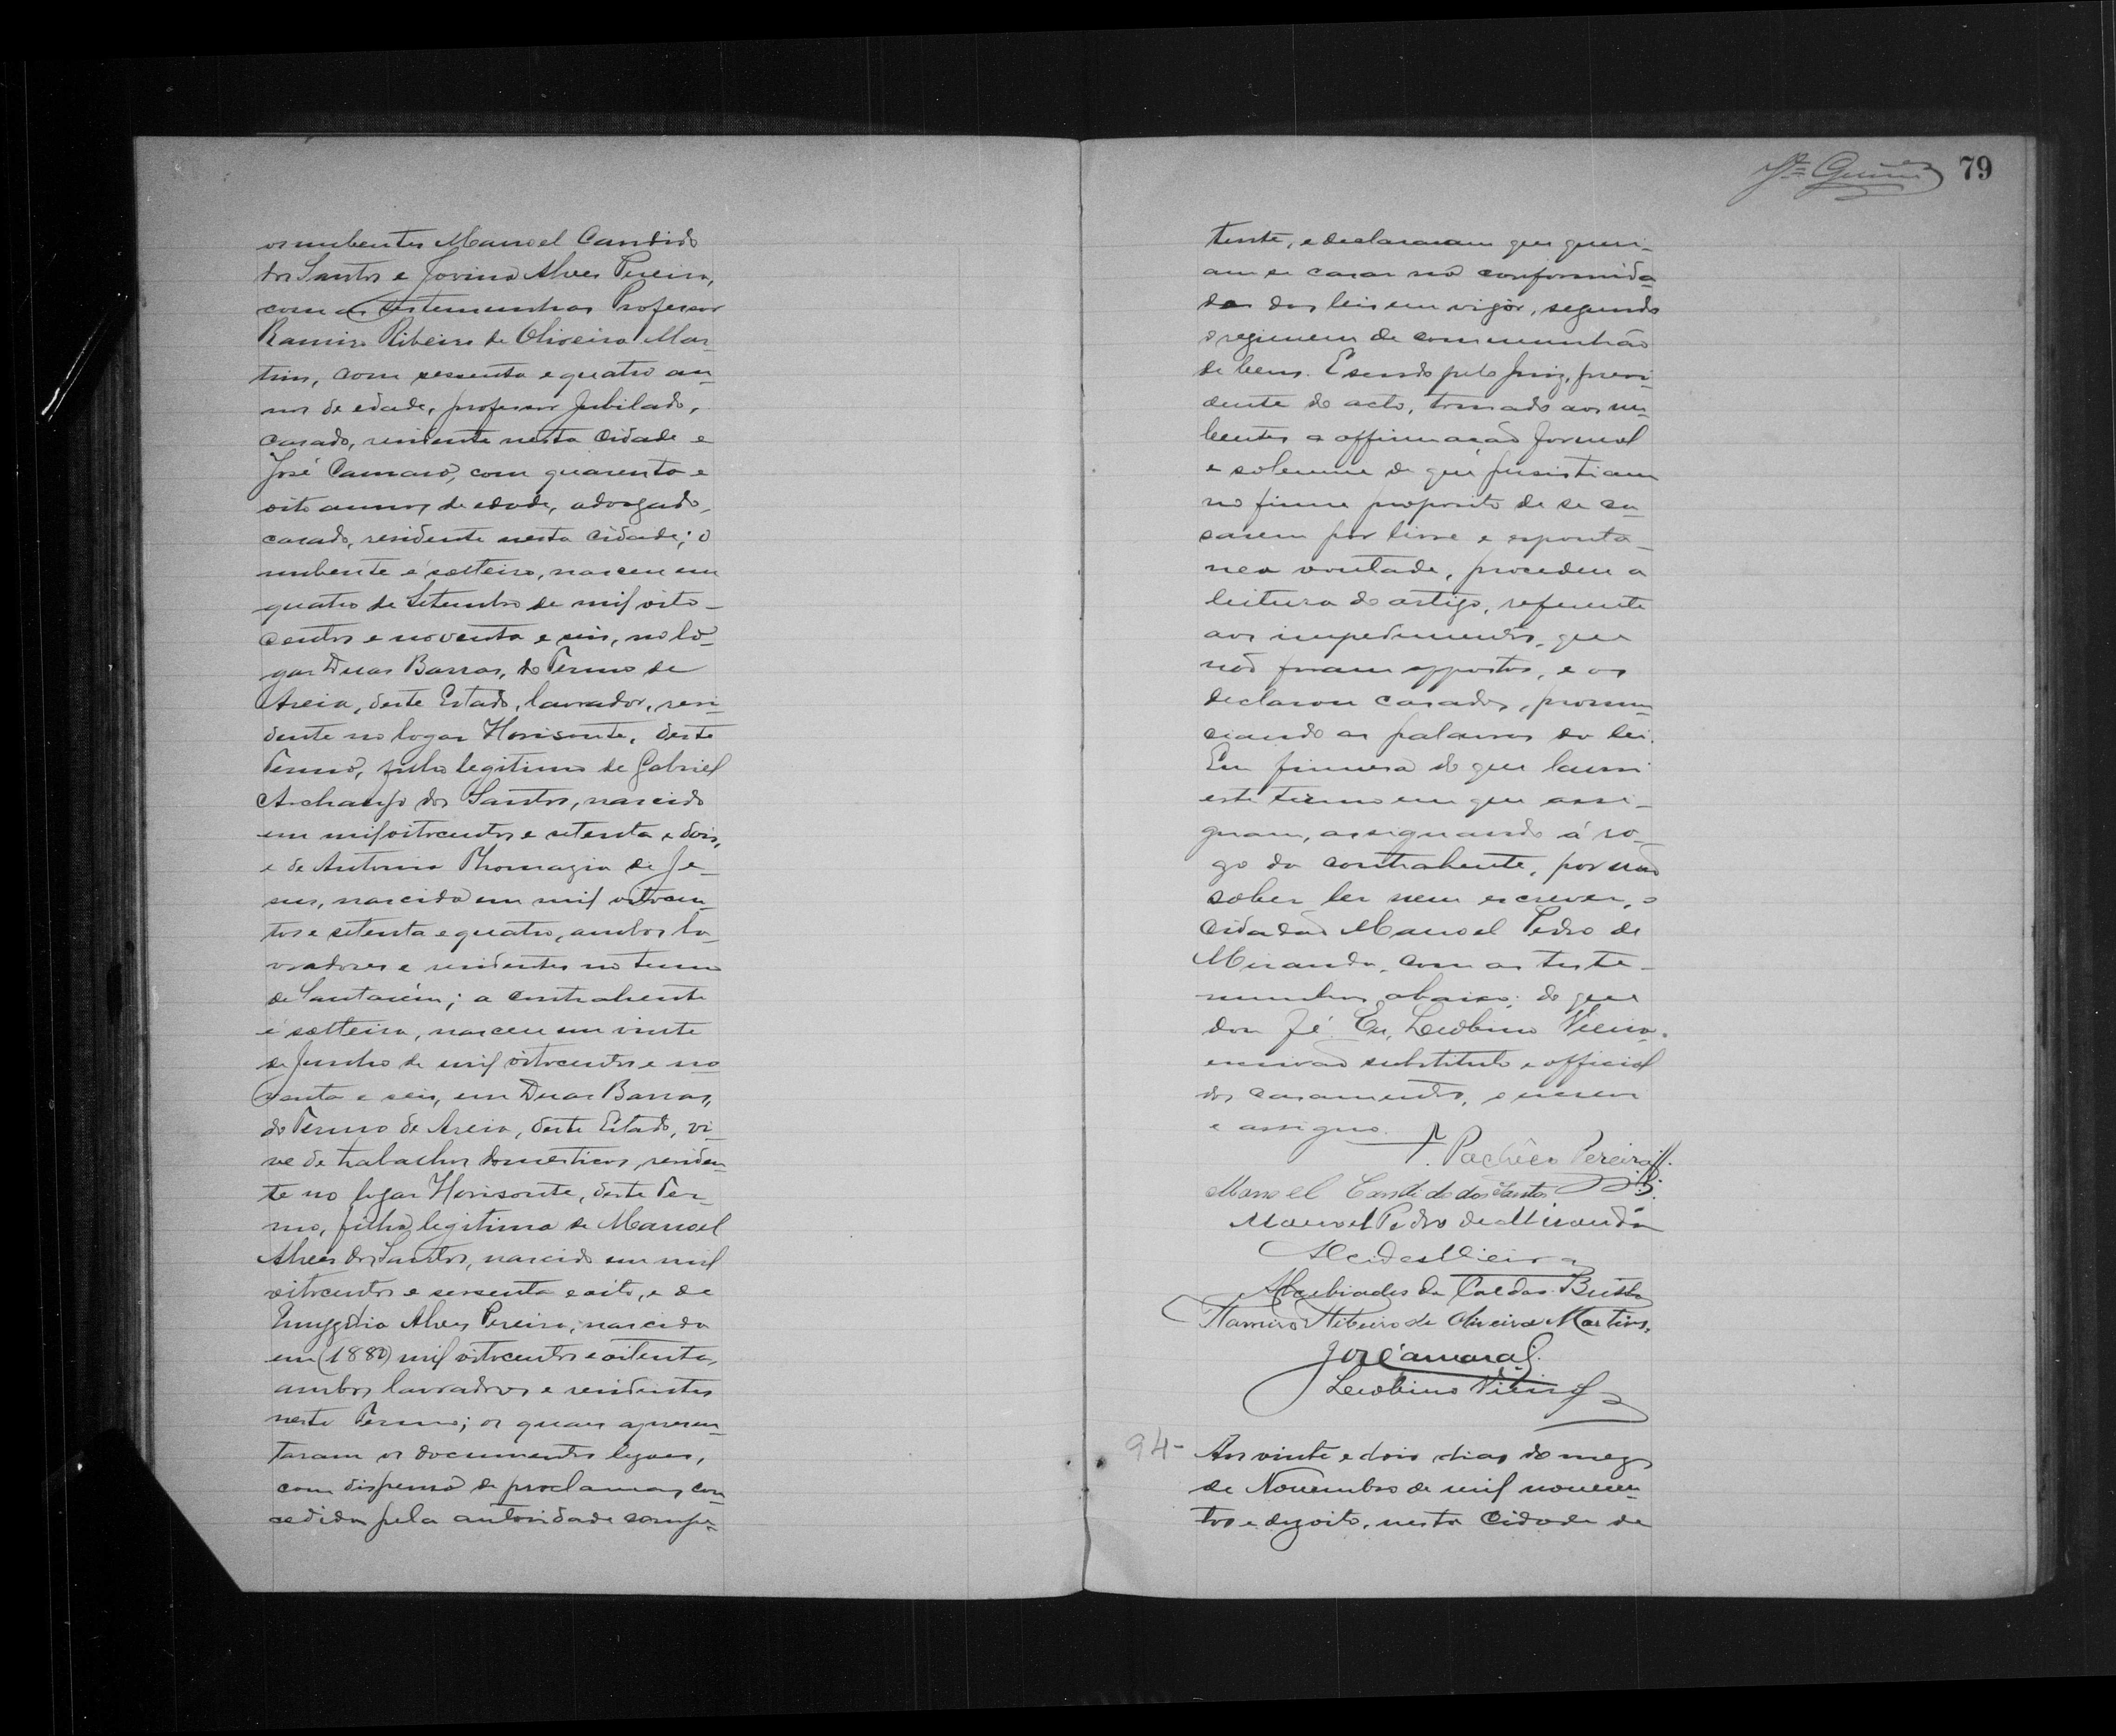 os nubentes Manoel Candido
dos Santos e Jovina Alves Pereira,
com as testemunhas Professor
Ramiro Ribeiro de Oliveira Mar-
tins, com sessenta e quatro an-
nos de edade, professor jubilado,
casado, residente nesta Cidade e
José Camará, com quarenta e
oito annos de edade, advogado,
casado, residente nesta Cidade; o
nubente é solteiro, nasceu em
quatro de Setembro de mil oito-
centos e noventa e seis, no lo-
gar Duas Barras, do Termo de
Areia, deste Estado, lavrador, resi-
dente no logar Horisonte, deste
Termo, filho legitimo de Gabriel
Archanjo dos Santos, nascido
em mil oitocentos e setenta e dois,
e de Antonia Thomazia de Je-
sus, nascida em mil oitocen-
tos e setenta e quatro, ambos la-
vradores e residentes no termo
de Santarém; a contrahente
é solteira, nasceu em vinte
de Junho de mil oitocentos e no
venta e seis, em Duas Barras,
do Termo de Areia, deste Estado, vi-
ve de trabalhos domesticos, residen-
te no logar Horisonte, deste Ter-
mo, filha legitima de Manoel
Alves dos Santos, nascido em mil
oitocentos e sessenta e oito, e de
Emygdia Alves Pereira, nascida
em (1880) mil oitocentos e oitenta,
ambos lavradores e residentes
neste Termo; os quaes apresen-
taram os documentos legaes,
com dispensa de proclamas con-
cedida pela autoridade compe-
79
tente, e declararam que queri-
am se casar na conformida-
de das leis em vigor, segundo
o regimem de communhão
de bens. E sendo pelo Juiz, presi-
dente do acto, tomado aos nu-
bentes a affirmação formal
e solemne de que persistiam
no firme proposito de se ca-
sarem por livre e esponta-
nea vontade, procedeu a
leitura do artigo, referente
aos impedimentos, que
não foram oppostos, e os
declarou casados, pronun-
ciando as palavras da lei.
Em firmesa do que lavrei
este termo em que assi-
gnam, assignando á ro-
go da contrahente, por não
saber ler nem escrever, o
cidadão Manoel Pedro de
Miranda, com as teste-
munhas abaixo; do que
dou fé. Eu, Leobino Vieira,
escrivão substituto e official
dos casamentos, o escrevi
e assigno.
Pachêco Pereira
Manoel Candido dos Santos
Manoel Pedro de Miranda
Alcides Vieira
Alcebiades da Caldas Britto
Ramiro Ribeiro de Oliveira Martins.
José Camará
Leobino Vieira
94- Aos vinte e dois dias do mez
de Novembro de mil novecen-
tos e dezoito, nesta Cidade de